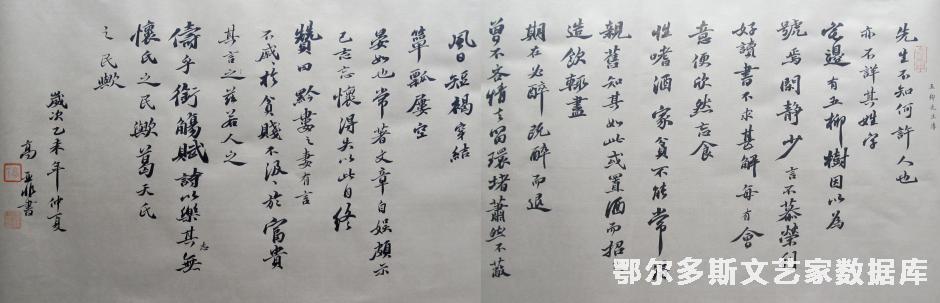 五柳先生傳
先生不知何許人也
亦不詳其姓字
宅邊有五柳樹因以為
號焉閑靜少言不慕榮利
好讀書不求甚解每有會
意便欣然忘食
性嗜酒家貧不能常得
親舊知其如此或置酒而招
造飲輒盡
期在必醉既醉而退
曾不吝情去留環堵蕭然不蔽
風日短褐穿結
簞瓢屢空
晏如也常著文章自娛頗示
己志忘懷得失以此自終
贊曰黔婁之妻有言
不戚於貧賤不汲〻於富貴
其言之茲若人之
儔乎銜觴賦詩以樂其志無
懷氏之民歟葛天氏
之民歟
歲次乙未年仲夏
高亚非書
鄂尔多斯文艺家数据库